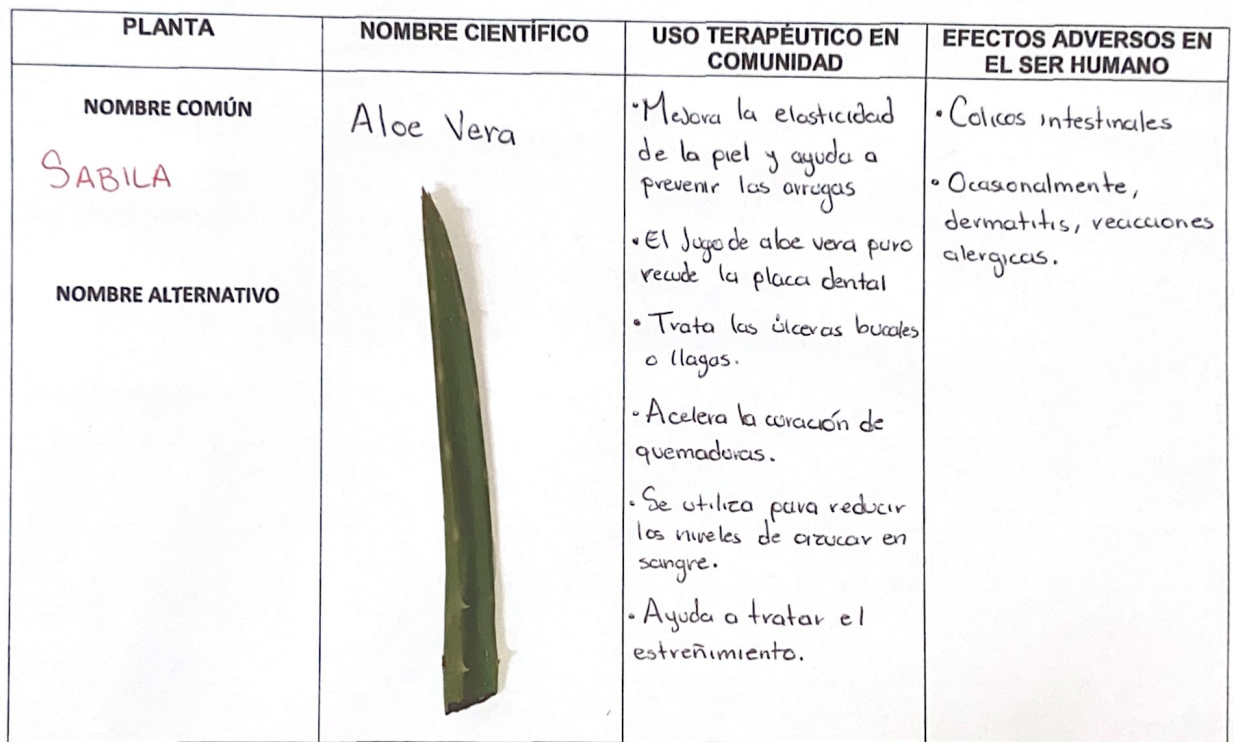 PLANTA
NOMBRE CIENTÍFICO
USO TERAPÉUTICO EN
COMUNIDAD
EFECTOS ADVERSOS EN
EL SER HUMANO
NOMBRE COMÚN
SABILA
NOMBRE ALTERNATIVO
Aloe Vera
• Mejora la elasticidad
de la piel y ayuda a
prevenir las arrugas
• El Jugo de aloe vera puro
recude la placa dental
• Trata las úlceras bucales
o llagas.
• Acelera la curación de
quemaduras.
• Se utiliza para reducir
los niveles de azucar en
sangre.
• Ayuda a tratar el
estreñimiento.
• Colicos intestinales
• Ocasionalmente,
dermatitis, reacciones
alergicas.